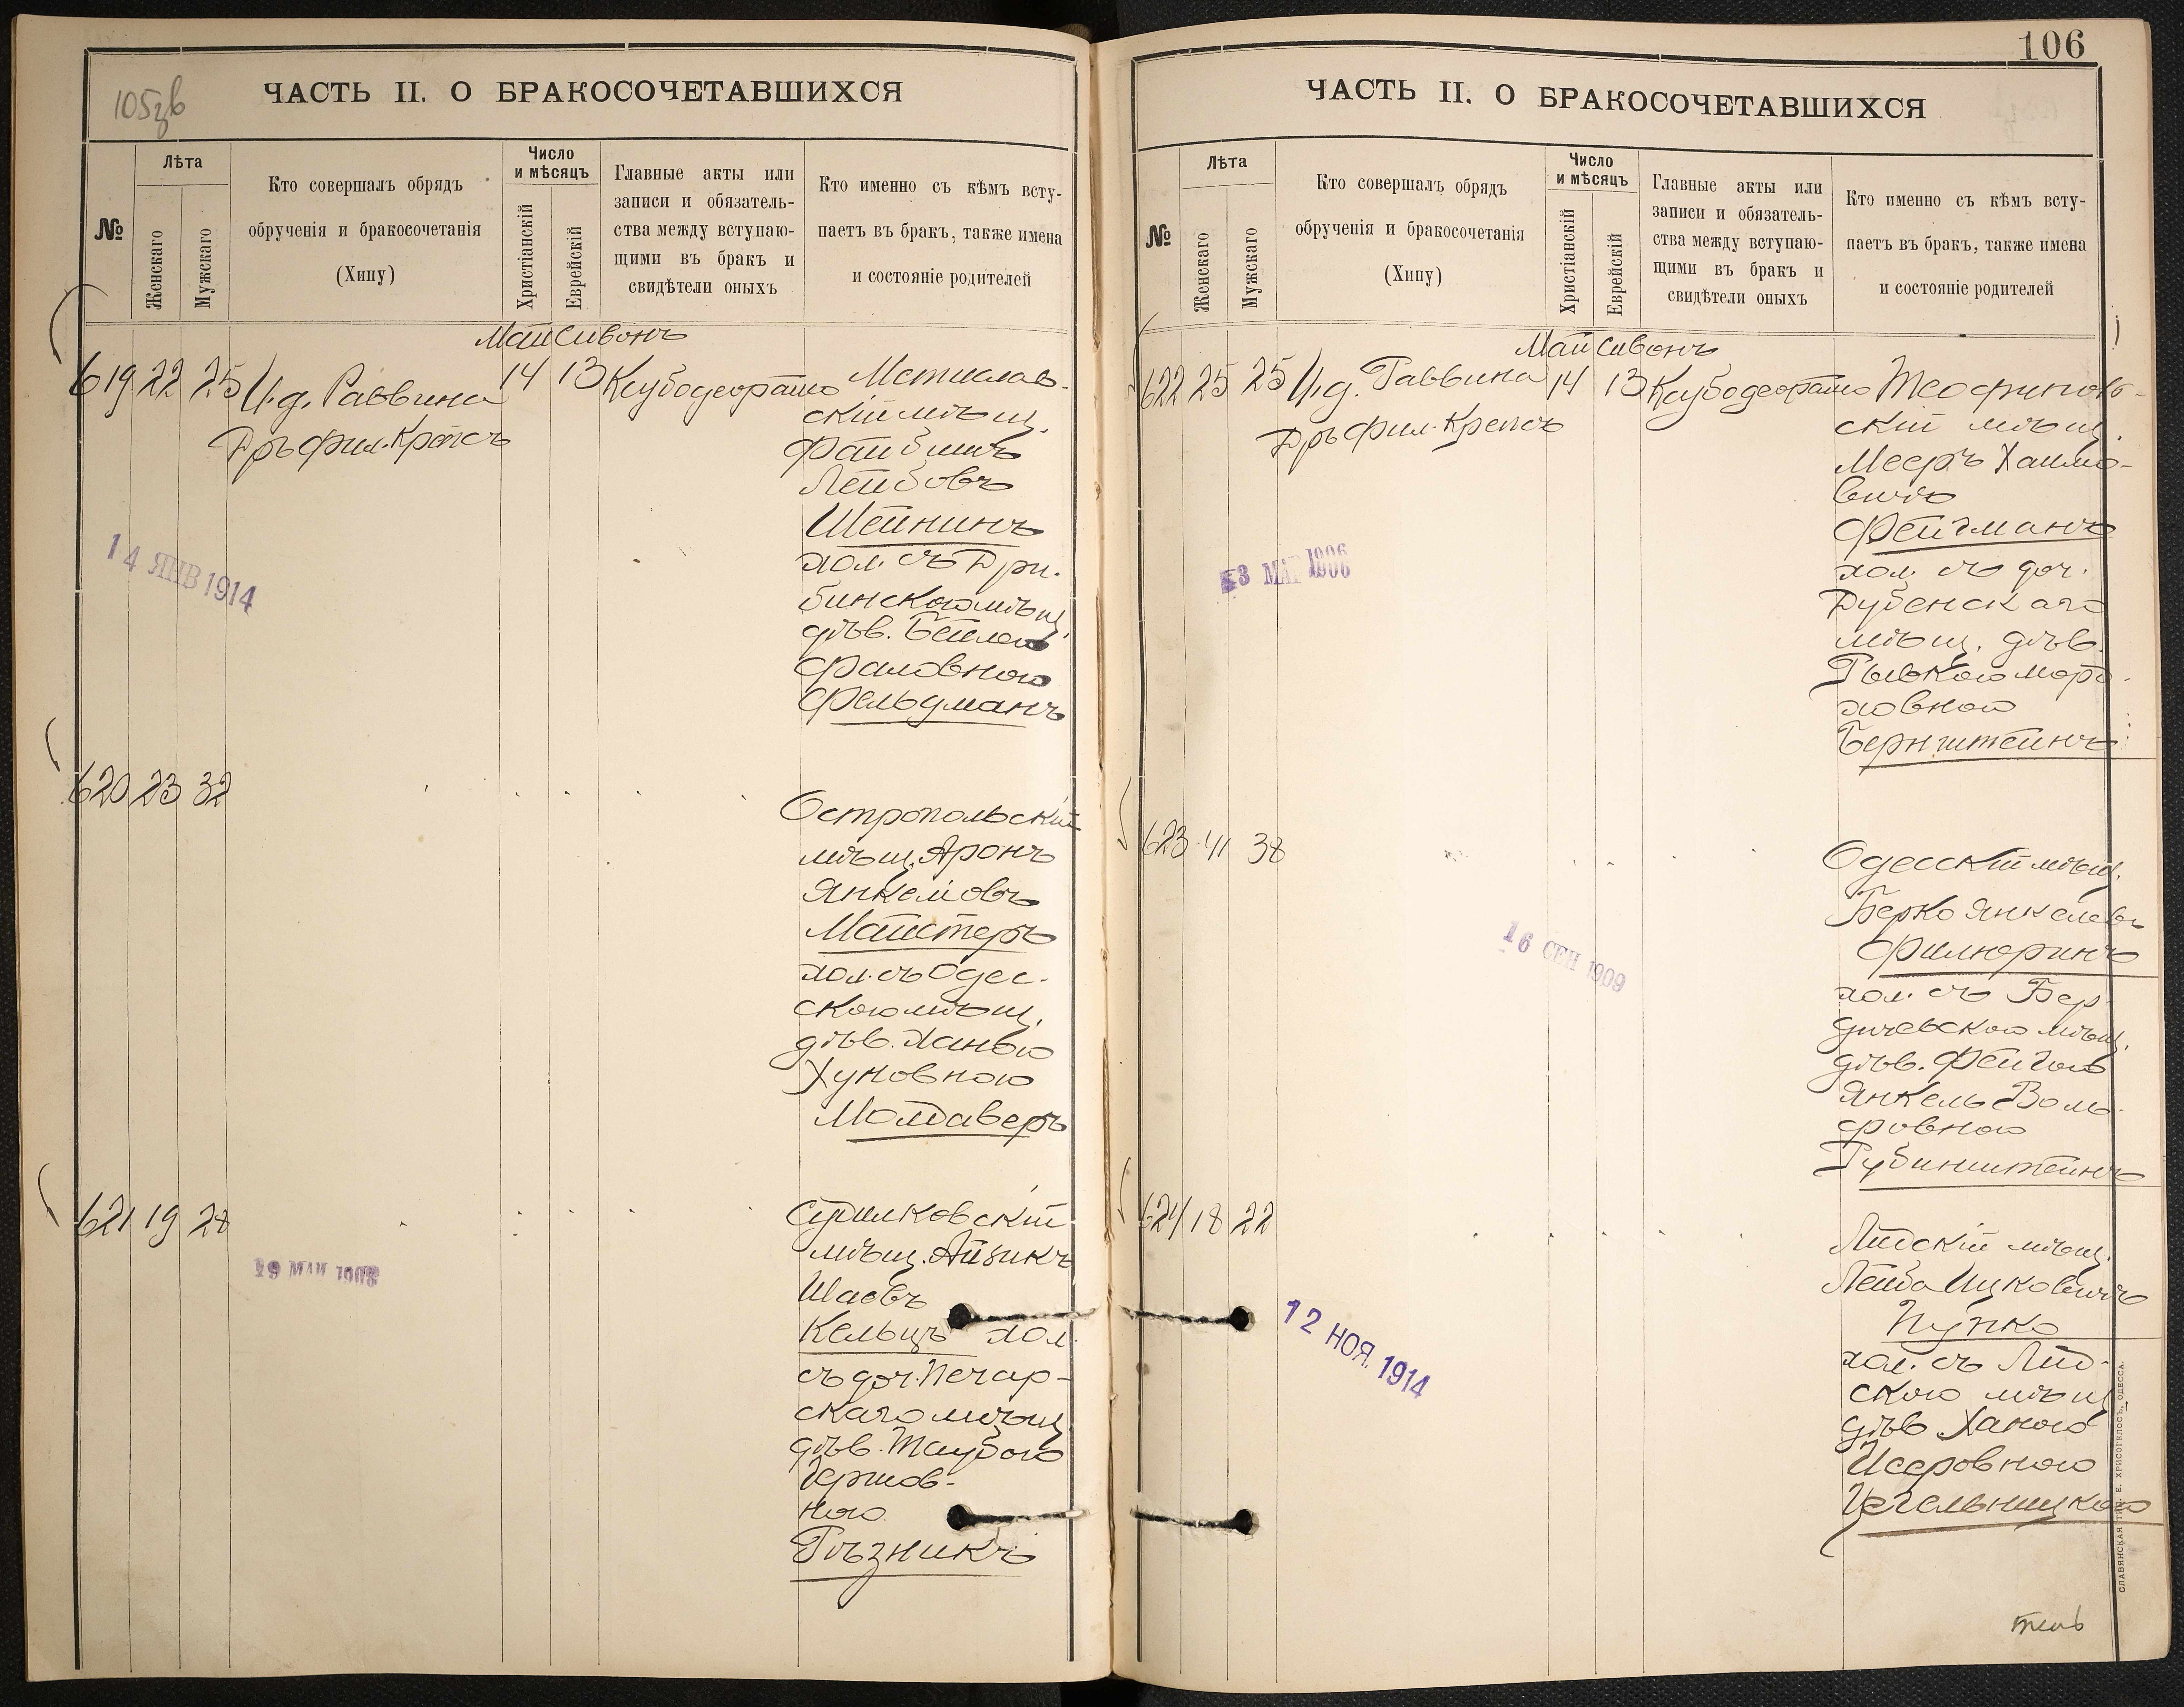 105 зв
ЧАСТЬ II. О БРАКОСОЧЕТАВШИХСЯ
№
Лѣта
Женскаго
Мужскаго
Кто совершалъ обрядъ
обрученія и бракосочетанія
(Хипу)
Число
и мѣсяцъ
Христіанскій
Еврейскій
Главные акты или
записи и обязатель-
ства между вступаю-
щими въ бракъ и
свидѣтели оныхъ
Кто именно съ кѣмъ всту-
паетъ въ бракъ, также имена
и состояніе родителей
Май Сивонъ
619 22 25 И.д. Раввина 14 13
Дръ Фил. Крепсъ
Мстислав-
скій мѣщ.
Файбишъ
Лейбовъ
Шейнинъ
хол. съ Дри-
бинскою мѣщ.
дѣв. Бейлею
Фаловною
Фельдманъ
14 ЯНВ 1914
620 23 32
Остропольскій
мѣщ. Аронъ
Янкелевъ
Майстеръ
хол. съ Одес-
скою мѣщ.
дѣв. Ханою
Хуновною
Молдаверъ
621 19 28
мѣщ. Айзикъ
Шаевъ
Кельцъ хол.
съ доч. Печар-
скаго мѣщ.
дѣв. Таубою
Гершов-
ною
Рѣзникъ
106
ЧАСТЬ II. О БРАКОСОЧЕТАВШИХСЯ
№
Лѣта
Женскаго
Мужскаго
Кто совершалъ обрядъ
обрученія и бракосочетанія
(Хипу)
Число
и мѣсяцъ
Христіанскій
Еврейскій
Главные акты или
записи и обязатель-
ства между вступаю-
щими въ бракъ и
свидѣтели оныхъ
Кто именно съ кѣмъ всту-
паетъ въ бракъ, также имена
и состояніе родителей
Май Сивонъ
622 25 25 И.д. Раввина 14 13
Дръ Фил. Крепсъ
Теофиполь-
скій мѣщ.
Мееръ Хаимо-
вичъ
Фейгманъ
хол. съ доч.
Дубенскаго
мѣщ. дѣв.
Рывкою Морд-
ховною
Бернштейнъ
1906
623 41 38
Одесскій мѣщ.
Берко Янкелевъ
Филюринъ
хол. съ Бер-
дичевскою мѣщ.
дѣв. Фейгою
Янкель Воль-
фовною
Рубинштейнъ
16 СЕН 1909
624 18 22
Лидскій мѣщ.
Лейба Ицковичъ
Пупко
хол. съ Лид-
скою мѣщ.
дѣв. Ханою
Исеровною
Цегельницкою
12 НОЯ. 1914
СЛАВЯНСКАЯ ТИП. Е. ХРИСОГЕЛОСЪ, ОДЕССА.